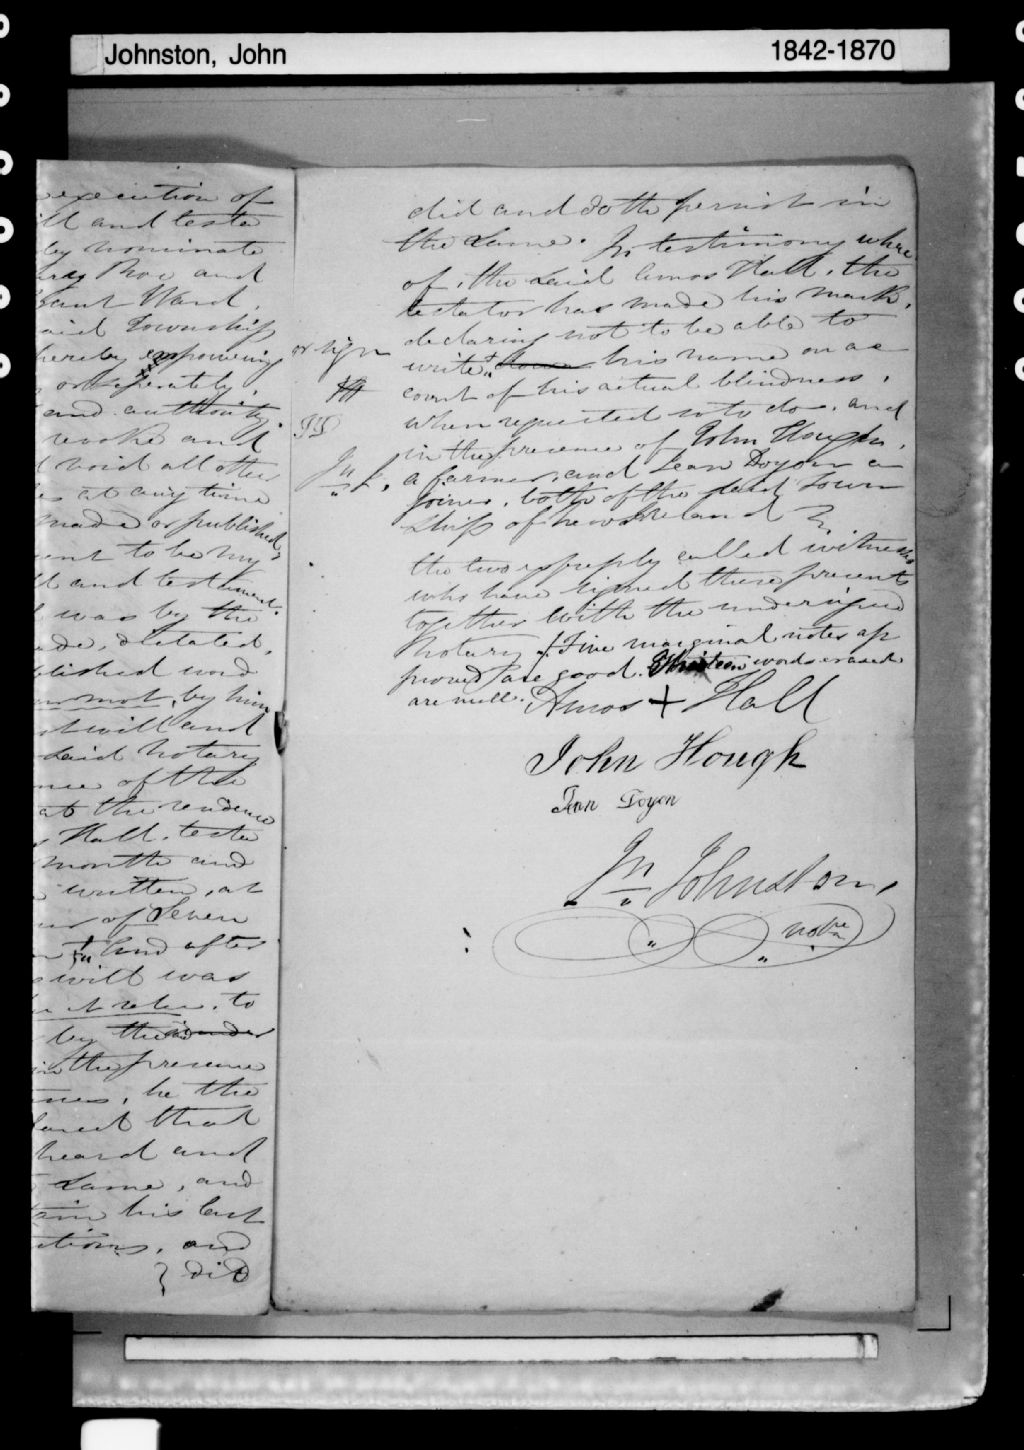 Johnston, John
1842-1870
execution of
and testa
by nominate
Roe and
Ward,
said Township
hereby empowering
or seperately,
and authority
revoke and
void all other
at any time
made or published,
to be my
and testament.
was by the
dictated,
published word
mot, by him
will and
said Notary
of the
at the residence
Hall, testa
month and
written, at
of Seven
And after
will was
et relu, to
by the
in the presence
he the
that
heard and
same, and
his last
and
did
did and doth persist in
the same. In testimony where
of, the said Amos Hall, the
testator has made his mark,
declaring not to be able to
or sign
write his name on ac
count of his actual blindness,
when requested so to do, and
in the presence of John Hough,
Jn J.
a farmer, and Jean Doyon a
joiner, both of the said Town
ship of New Ireland
the two expressly called witnesses
who have signed these presents
together with the undersigned
Notary. Five marginal notes ap
proved are good. Thirteen words erased
are null. Amos + Hall
John Hough
Jean Doyon
Jn Johnston,
notre